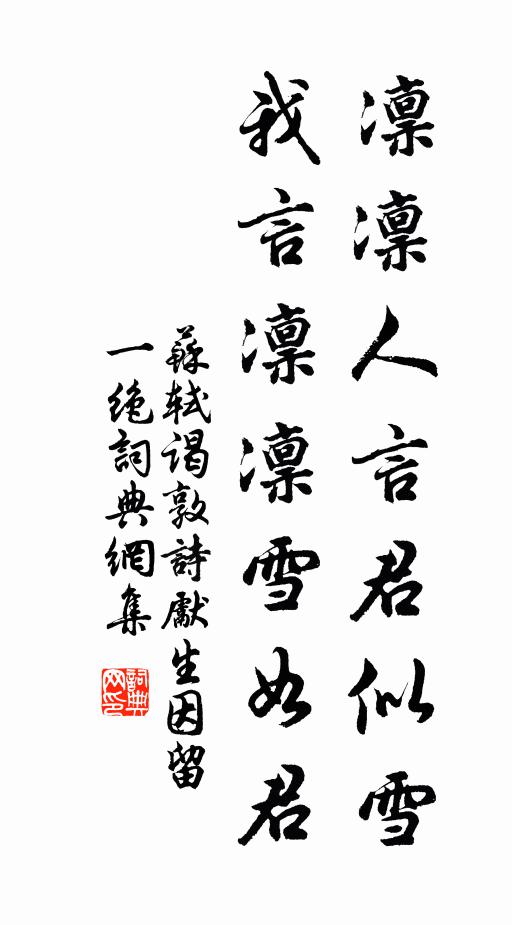 凜凜人言君似雪
我言凜凜雪如君
蘇軾謁敦詩獻生因留
一絶詞典網集
詞典网印